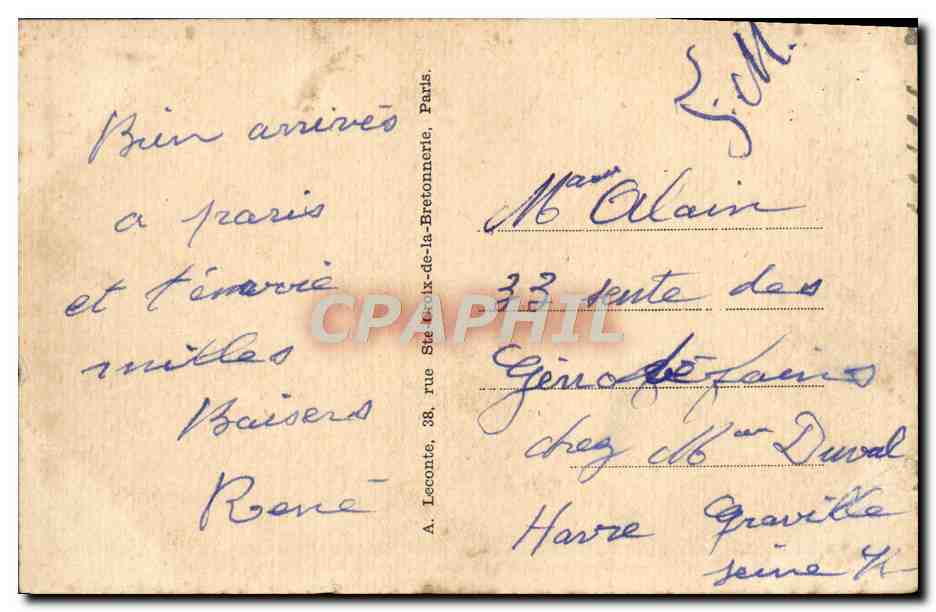 Bien arrivés
a paris
et t'envoie
milles
Baisers
René
A. Leconte, 38, rue Ste-Croix-de-la-Bretonnerie, Paris.
CPAPHIL
J. M.
Alain
33 sente des
Génovéfains
chez Duval
Havre Graville
seine